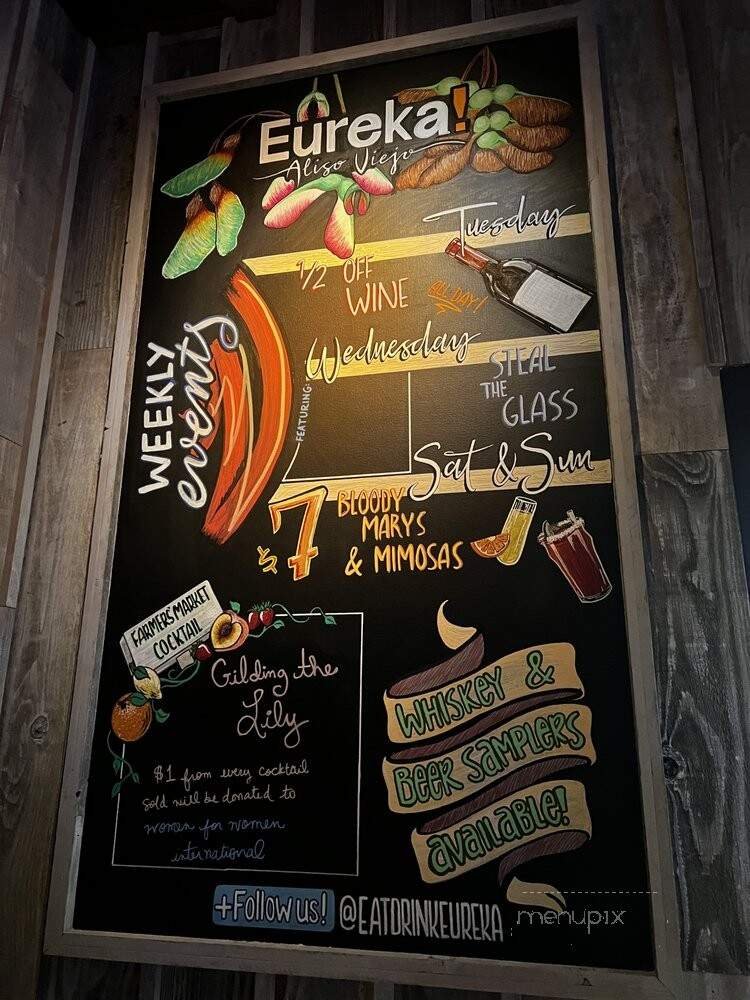 Eureka!
Aliso Viejo
WEEKLY
events
Tuesday
1/2 OFF
WINE
ALL DAY!
Wednesday
FEATURING:
STEAL
THE
GLASS
Sat & Sun
$7 BLOODY
MARYS
& MIMOSAS
FARMERS MARKET
COCKTAIL
Gilding the
Lily
$1 from every cocktail
sold will be donated to
women for women
international
WHISKEY &
BEER SAMPLERS
available!
+Follow us! @EATDRINKEUREKA
menupix